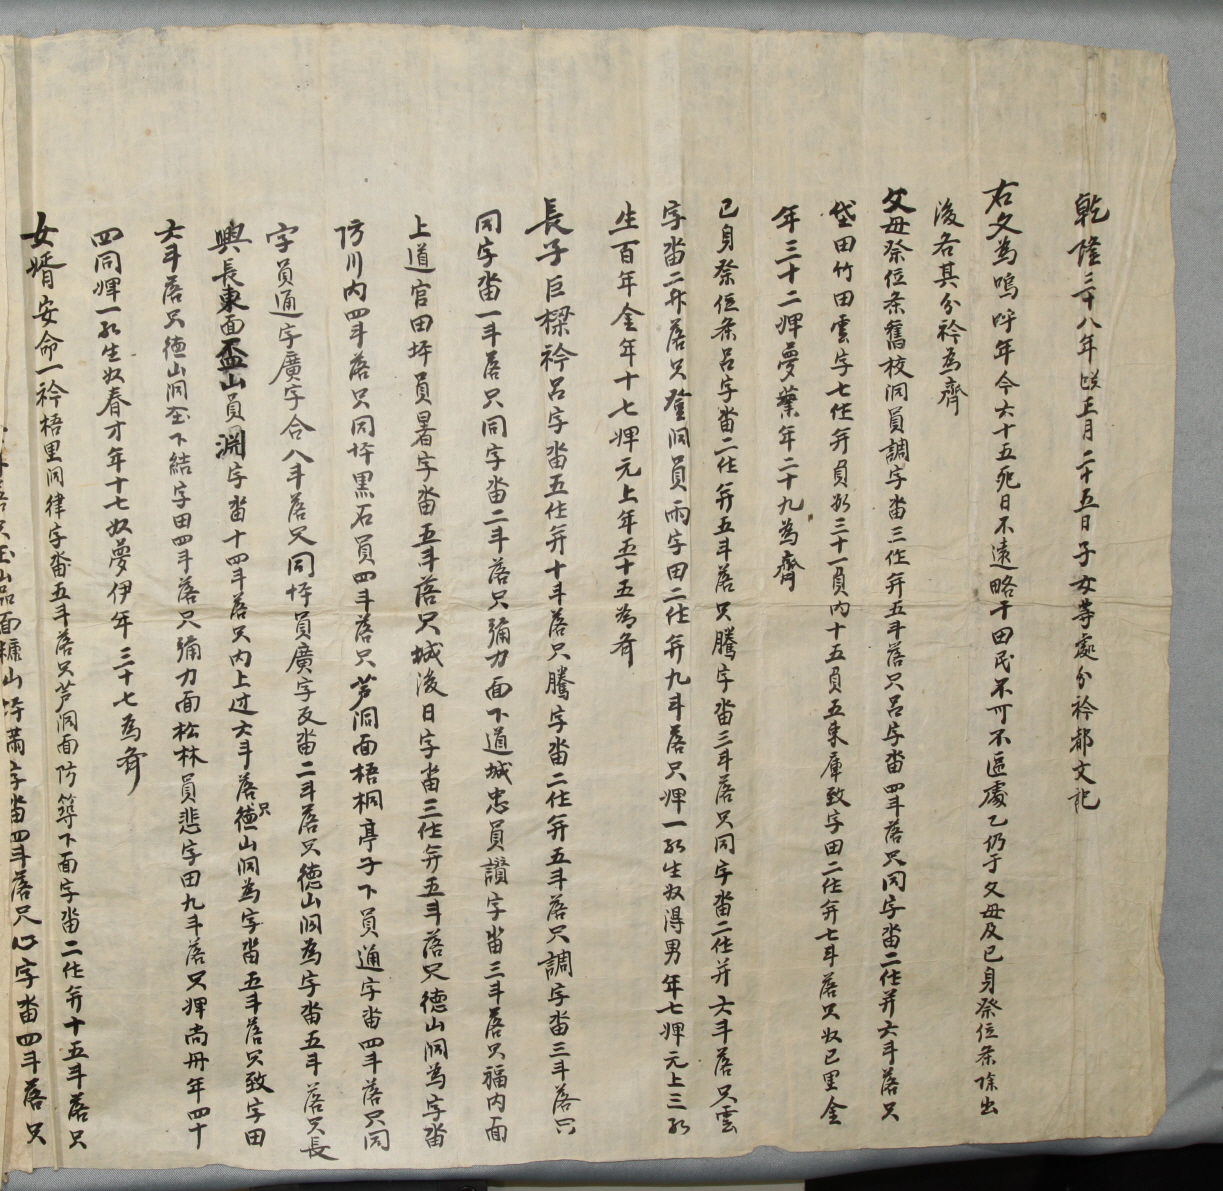 乾隆三十八年癸巳正月二十五日子女等處分衿都文記
右文為嗚呼年今六十五死日不遠略干田民不可不區處乙仍于父母及己身祭位条除出
後各其分衿為齊
父母祭位条舊校洞員調字畓三作幷五斗落只呂字畓四斗落只同字畓二作幷六斗落只
岱田竹田雲字七作幷員수三十一負內十五負五束庫致字田二作幷七斗落只奴己里金
年三十二婢夢葉年二十九為齊
己身祭位条呂字畓二作幷五斗落只騰字畓三斗落只同字畓二作幷六斗落只雲
字畓二升落只登洞員雨字田二作幷九斗落只婢一所生奴得男年七婢元上三所
生百年金年十七婢元上年五十五為齊
長子巨樑衿呂字畓五作幷十斗落只騰字畓二作幷五斗落只調字畓三斗落只
同字畓一斗落只同字畓二斗落只彌力面下道城忠員讃字畓三斗落只福內面
上道官田坪員暑字畓五斗落只城後日字畓三作幷五斗落只德山洞為字畓
防川內四斗落只同坪黑石員四斗落只芦洞面梧桐亭子下員通字畓四斗落只同
字員通字廣字合八斗落只同坪員廣字反畓二斗落只德山洞為字畓五斗落只長
興長東面盃山員淵字畓十四斗落只內上过六斗落只德山洞為字畓五斗落只致字田
六斗落只德山洞至下結字田四斗落只彌力面松林員悲字田九斗落只婢尚丹年四十
四同婢一所生奴春才年十七奴夢伊年三十七為齊
女壻安命一衿梧里洞律字畓五斗落只芦洞面防築下面字畓二作幷十五斗落只
落只玉山品面糠山坪萬字畓四斗落只心字畓四斗落只